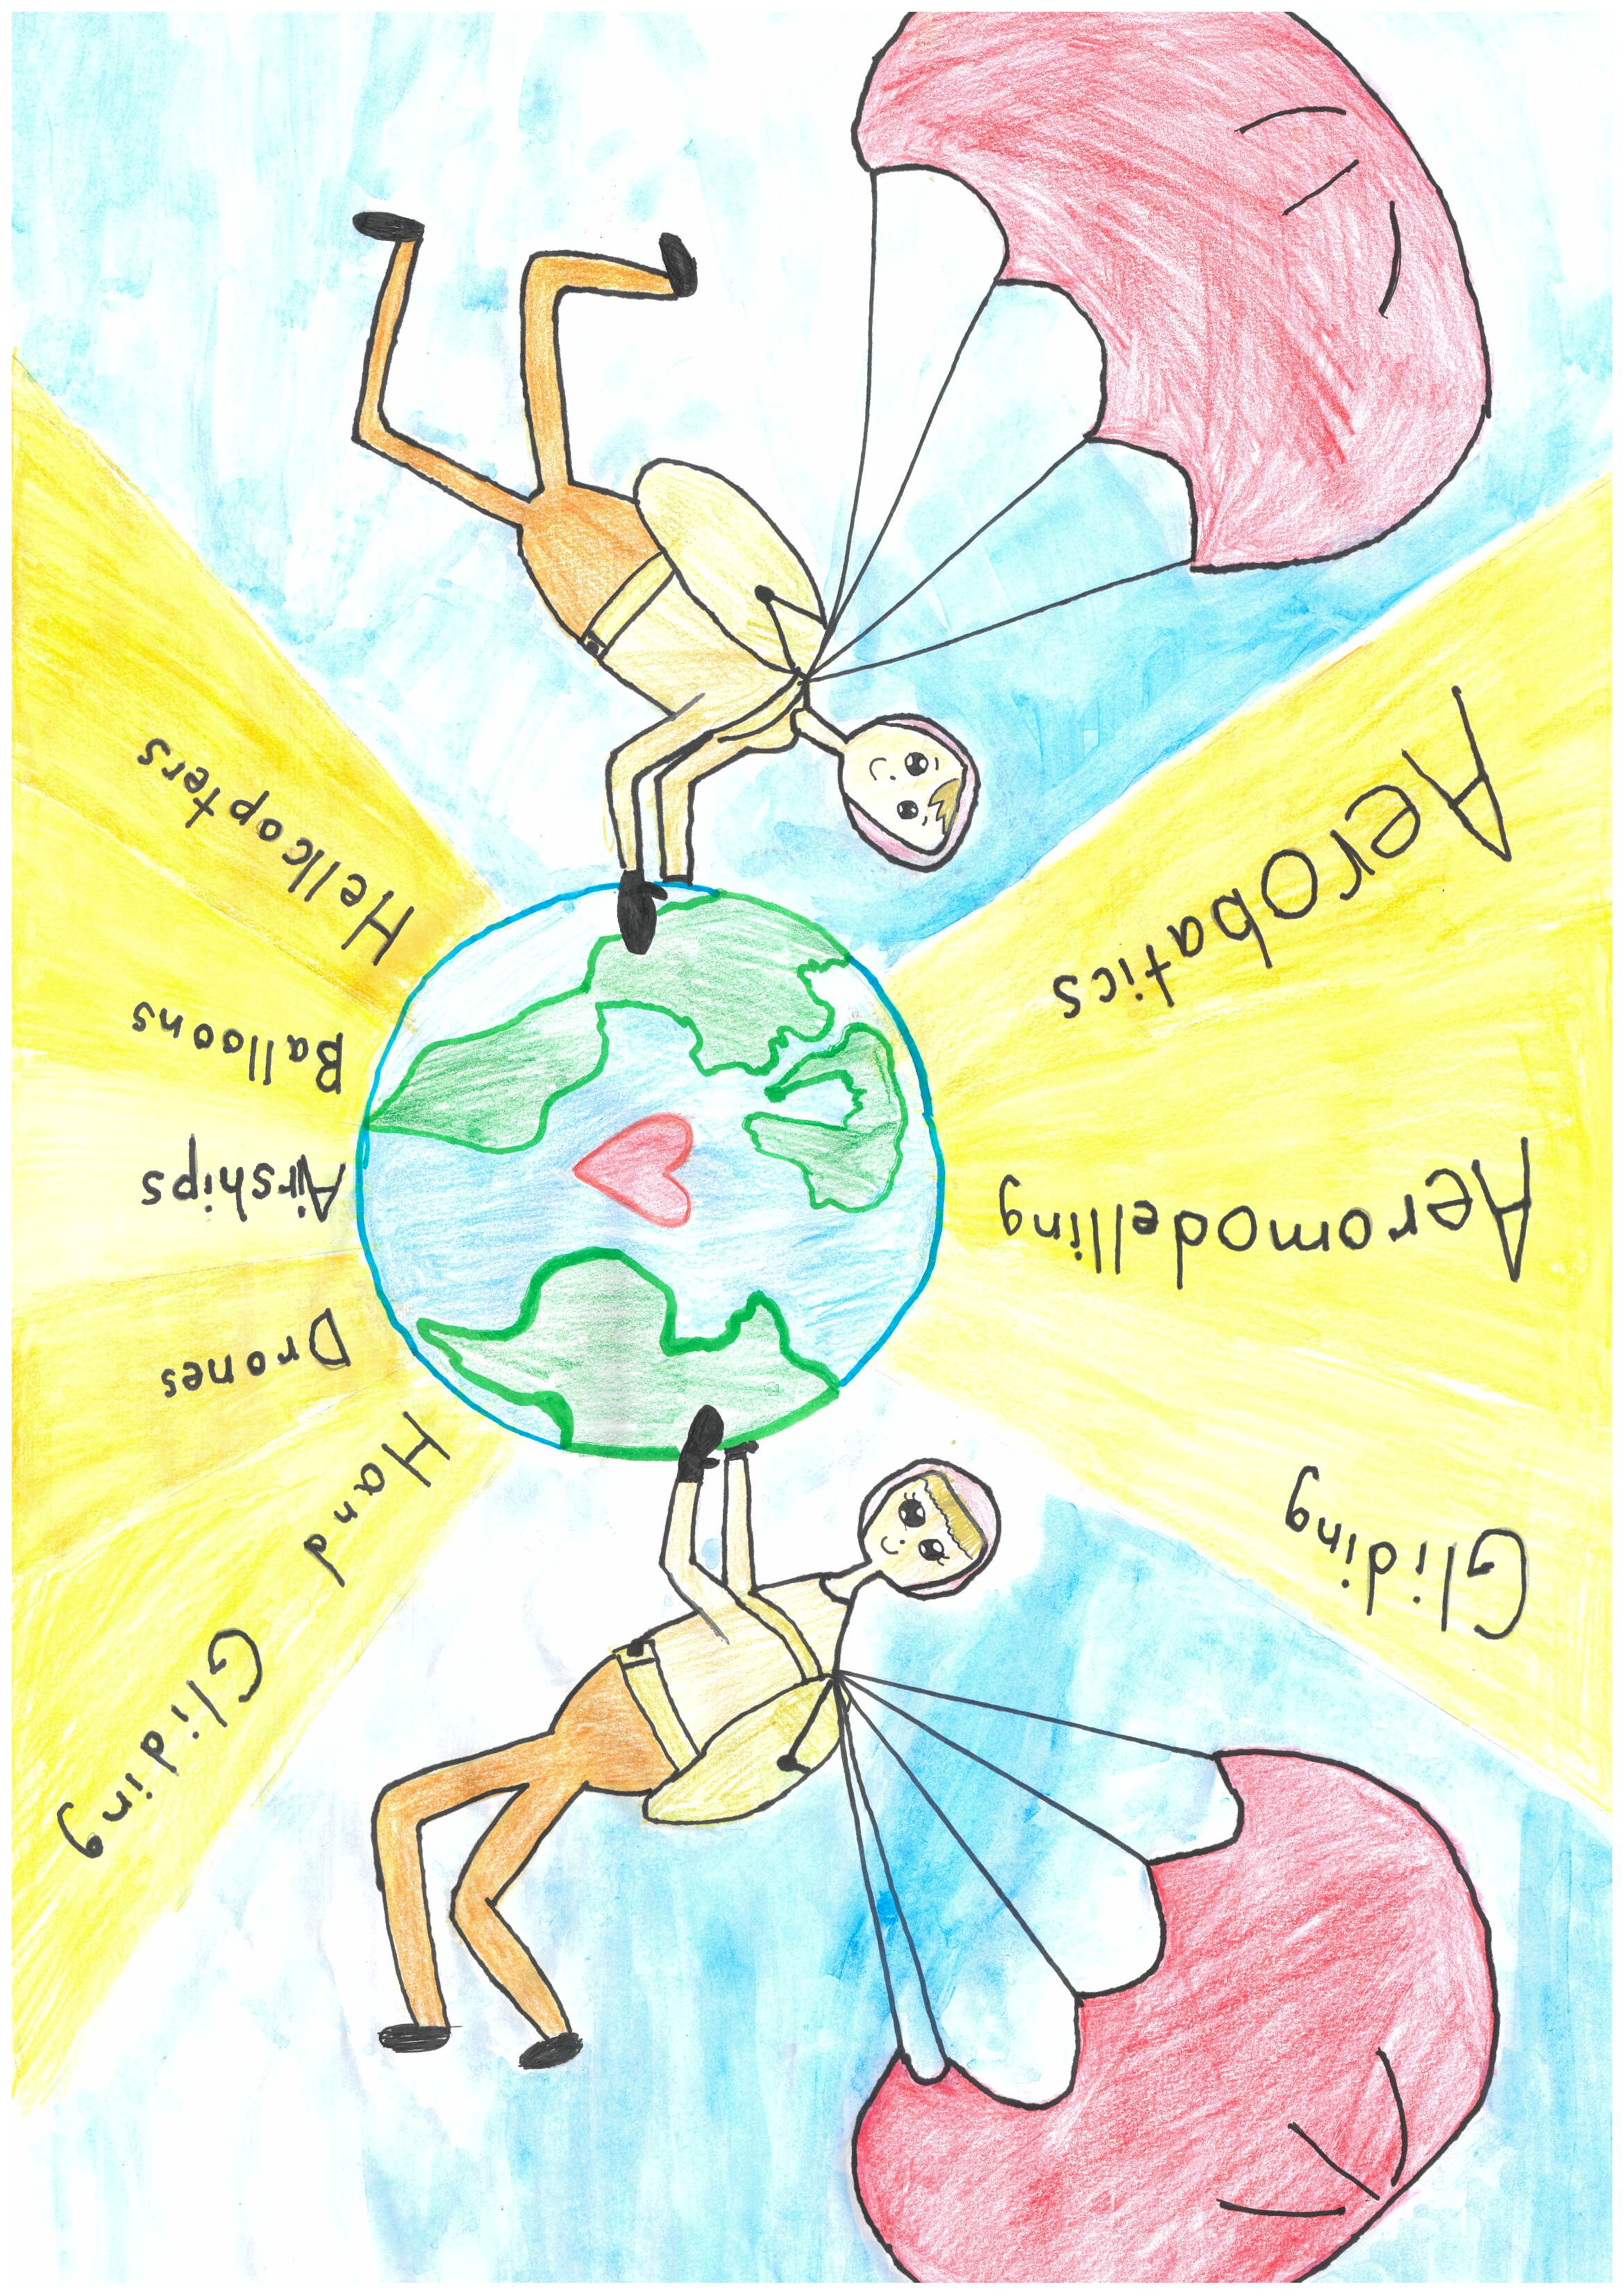 Aerobatics
Aeromodelling
Gliding
Helicopters
Balloons
Airships
Drones
Hand Gliding